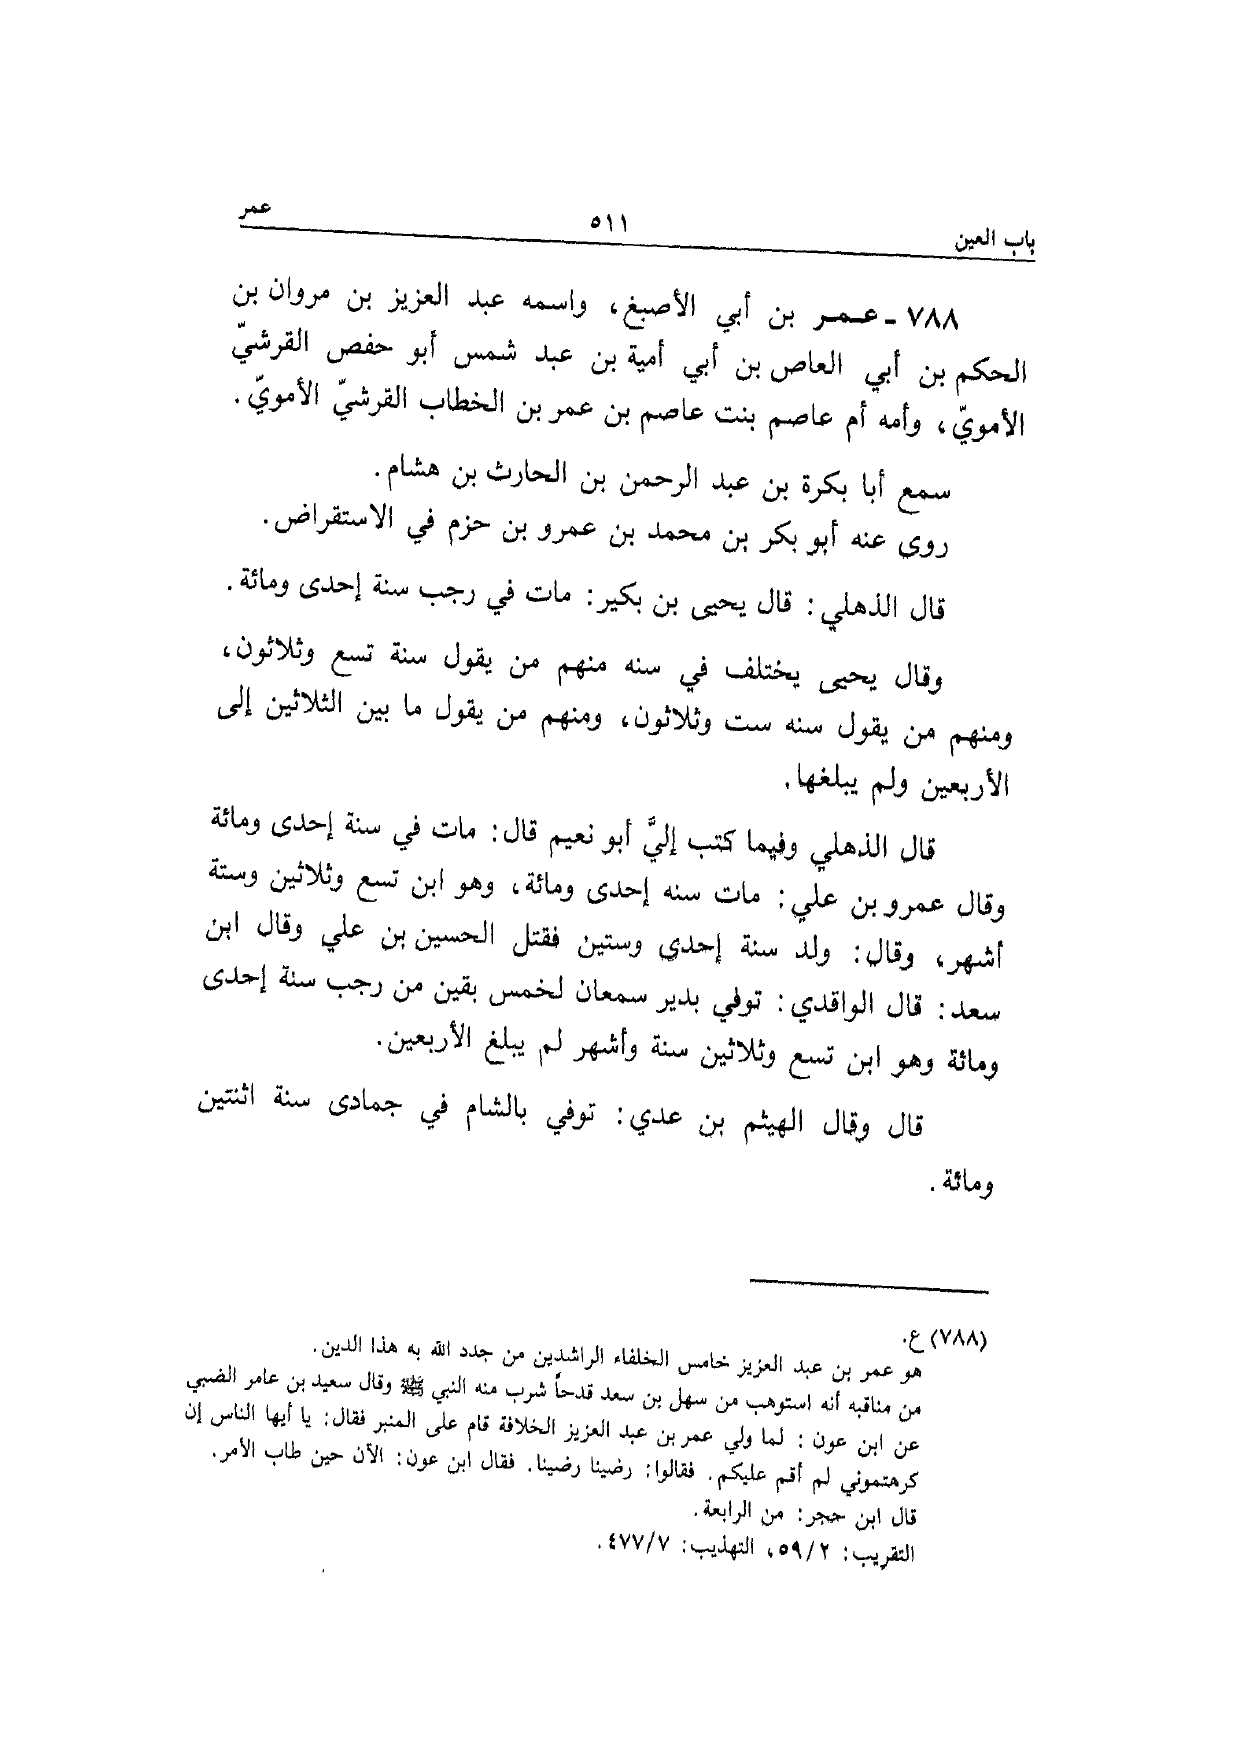 باب العين ٥١١ عمر
٧٨٨ ـ عمر بن أبي الأصبغ، واسمه عبد العزيز بن مروان بن
الحكم بن أبي العاص بن أبي أمية بن عبد شمس أبو حفص القرشيّ
الأمويّ، وأمه أم عاصم بنت عاصم بن عمر بن الخطاب القرشيّ الأمويّ.
سمع أبا بكرة بن عبد الرحمن بن الحارث بن هشام.
روى عنه أبو بكر بن محمد بن عمرو بن حزم في الاستقراض.
قال الذهلي: قال يحيى بن بكير: مات في رجب سنة إحدى ومائة.
وقال يحيى يختلف في سنه منهم من يقول سنة تسع وثلاثون،
ومنهم من يقول سنه ست وثلاثون، ومنهم من يقول ما بين الثلاثين إلى
الأربعين ولم يبلغها.
قال الذهلي وفيما كتب إليَّ أبو نعيم قال: مات في سنة إحدى ومائة
وقال عمرو بن علي: مات سنه إحدى ومائة، وهو ابن تسع وثلاثين وستة
أشهر، وقال: ولد سنة إحدى وستين فقتل الحسين بن علي وقال ابن
سعد: قال الواقدي: توفي بدير سمعان لخمس بقين من رجب سنة إحدى
ومائة وهو ابن تسع وثلاثين سنة وأشهر لم يبلغ الأربعين.
قال وقال الهيثم بن عدي: توفي بالشام في جمادى سنة اثنتين
ومائة.
(٧٨٨) ع.
هو عمر بن عبد العزيز خامس الخلفاء الراشدين من جدد الله به هذا الدين.
من مناقبه أنه استوهب من سهل بن سعد قدحاً شرب منه النبي ﷺ وقال سعيد بن عامر الضبي
عن ابن عون: لما ولي عمر بن عبد العزيز الخلافة قام على المنبر فقال: يا أيها الناس إن
كرهتموني لم أقم عليكم. فقالوا: رضينا رضينا. فقال ابن عون: الآن حين طاب الأمر.
قال ابن حجر: من الرابعة.
التقريب: ٥٩/٢، التهذيب: ٤٧٧/٧.